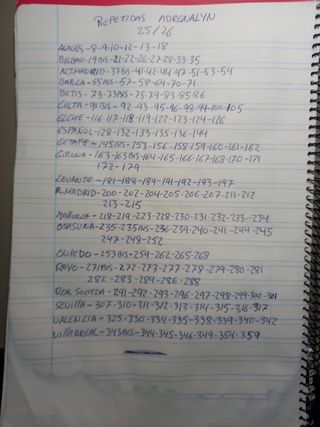 REPETIDAS ADRENALYN
25/26
ALAVES-8-9-10-12-13-18
BILBAO-19BIS-21-22-26-27-28-33-35
ALT.MADRID-37BIS-41-42-44-47-51-53-54
BARÇA-55BIS-57-58-64-70-71
BETIS-73-73BIS-75-79-83-85-86
CELTA-91BIS-92-93-95-96-98-99-100-105
ELCHE-116-117-118-119-122-123-124-126
ESPAÑOL-128-132-133-135-136-144
GETAFE-145BIS-153-156-158-159-160-161-162
GIRONA-163-163BIS-164-165-166-167-168-170-171
172-179
LEVANTE-181-188-189-191-192-193-197
R.MADRID-200-202-204-205-206-207-211-212
213-215
MALLORCA-218-219-223-228-230-231-232-233-234
OSASUNA-235-235BIS-236-239-240-241-244-245
247-248-252
OVIEDO-253BIS-259-262-265-268
RAYO-271BIS-272-273-277-278-279-280-281
282-283-284-286-288
REAL SOCIEDA-291-292-293-296-297-298-299-300-301
SEVILLA-307-310-311-312-313-314-315-316-317
VALENCIA-325-330-334-335-338-339-340-342
VILLARREAL-343BIS-344-345-346-349-354-359